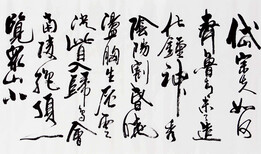 岱宗夫如何
齊魯青未了造
化鍾神秀
陰陽割昏曉
盪胸生層雲
決眥入歸鳥會
當凌絕頂一
覽衆山小